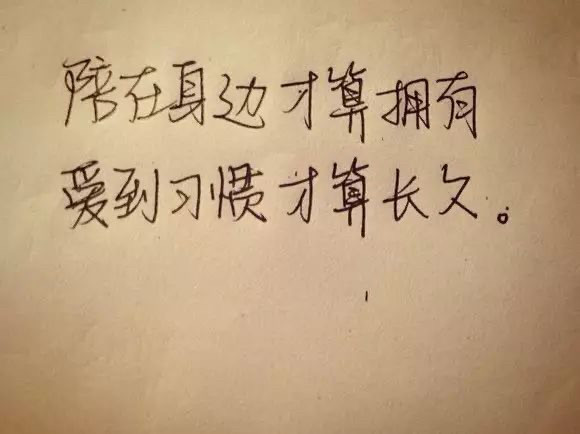 陪在身边才算拥有
爱到习惯才算长久。